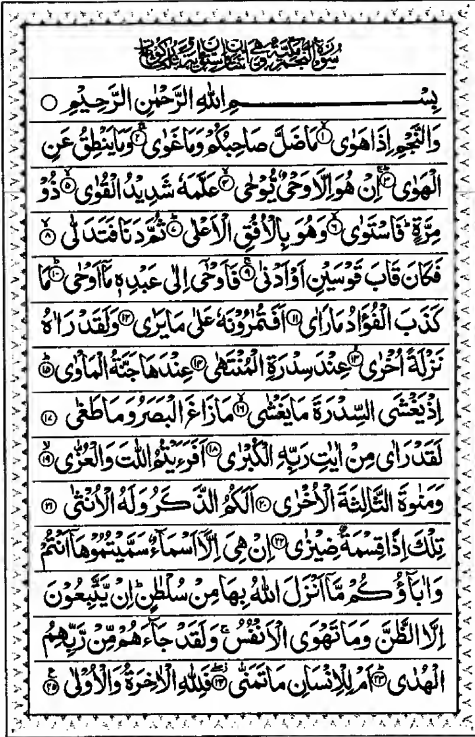 بِسْمِ اللهِ الرَّحْمٰنِ الرَّحِيْمِ ○
وَالنَّجْمِ اِذَا هَوٰى ۙ﴿۱﴾ مَا ضَلَّ صَاحِبُكُمْ وَمَا غَوٰى ۚ﴿۲﴾ وَمَا يَنْطِقُ عَنِ
الْهَوٰى ؕ﴿۳﴾ اِنْ هُوَ اِلَّا وَحْيٌ يُّوْحٰى ۙ﴿۴﴾ عَلَّمَهٗ شَدِيْدُ الْقُوٰى ۙ﴿۵﴾ ذُوْ
مِرَّةٍ ؕ فَاسْتَوٰى ۙ﴿۶﴾ وَهُوَ بِالْاُفُقِ الْاَعْلٰى ؕ﴿۷﴾ ثُمَّ دَنَا فَتَدَلّٰى ۙ﴿۸﴾
فَكَانَ قَابَ قَوْسَيْنِ اَوْ اَدْنٰى ۚ﴿۹﴾ فَاَوْحٰۤى اِلٰى عَبْدِهٖ مَاۤ اَوْحٰى ؕ﴿۱۰﴾ مَا
كَذَبَ الْفُؤَادُ مَا رَاٰى ﴿۱۱﴾ اَفَتُمٰرُوْنَهٗ عَلٰى مَا يَرٰى ﴿۱۲﴾ وَلَقَدْ رَاٰهُ
نَزْلَةً اُخْرٰى ۙ﴿۱۳﴾ عِنْدَ سِدْرَةِ الْمُنْتَهٰى ﴿۱۴﴾ عِنْدَهَا جَنَّةُ الْمَاْوٰى ؕ﴿۱۵﴾
اِذْ يَغْشَى السِّدْرَةَ مَا يَغْشٰى ۙ﴿۱۶﴾ مَا زَاغَ الْبَصَرُ وَمَا طَغٰى ﴿۱۷﴾
لَقَدْ رَاٰى مِنْ اٰيٰتِ رَبِّهِ الْكُبْرٰى ﴿۱۸﴾ اَفَرَءَيْتُمُ اللّٰتَ وَالْعُزّٰى ۙ﴿۱۹﴾
وَمَنٰوةَ الثَّالِثَةَ الْاُخْرٰى ﴿۲۰﴾ اَلَكُمُ الذَّكَرُ وَلَهُ الْاُنْثٰى ﴿۲۱﴾
تِلْكَ اِذًا قِسْمَةٌ ضِيْزٰى ﴿۲۲﴾ اِنْ هِيَ اِلَّاۤ اَسْمَآءٌ سَمَّيْتُمُوْهَاۤ اَنْتُمْ
وَاٰبَآؤُكُمْ مَّاۤ اَنْزَلَ اللهُ بِهَا مِنْ سُلْطٰنٍ ؕ اِنْ يَّتَّبِعُوْنَ
اِلَّا الظَّنَّ وَمَا تَهْوَى الْاَنْفُسُ ۚ وَلَقَدْ جَآءَهُمْ مِّنْ رَّبِّهِمُ
الْهُدٰى ؕ﴿۲۳﴾ اَمْ لِلْاِنْسَانِ مَا تَمَنّٰى ۖ﴿۲۴﴾ فَلِلّٰهِ الْاٰخِرَةُ وَالْاُوْلٰى ﴿۲۵﴾